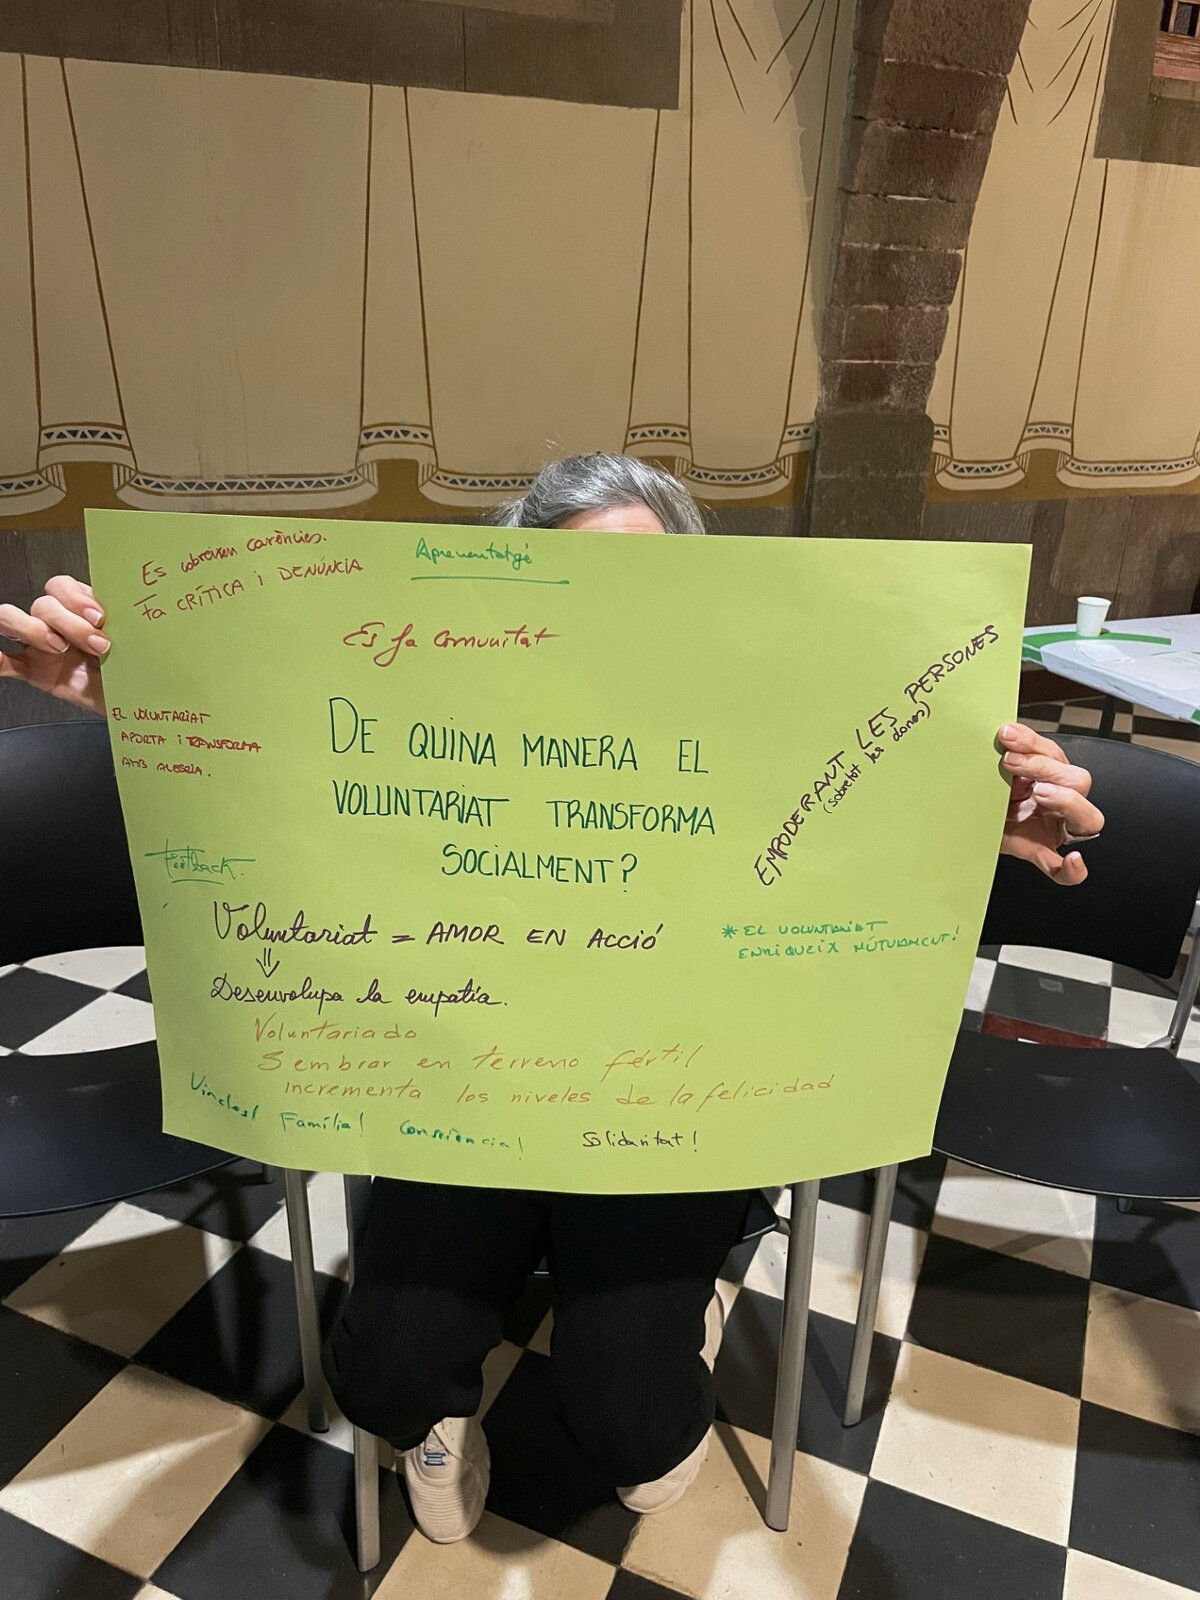 Es cobreixen carències.
Fa CRÍTICA i DENÚNCIA
Aprenentatge
Es fa comunitat
EL VOLUNTARIAT
APORTA i TRANSFORMA
AMB ALEGRIA.
DE QUINA MANERA EL
VOLUNTARIAT TRANSFORMA
SOCIALMENT?
EMPODERANT LES PERSONES
(sobretot les dones)
Feetback.
Voluntariat = AMOR EN ACCIÓ
⇓
Desenvolupa la empatía.
* EL VOLUNTARIAT
ENRIQUEIX MÚTUAMENT!
Voluntariado
Sembrar en terreno fértil
incrementa los niveles de la felicidad
Vincles! Família! Consciència! Solidaritat!